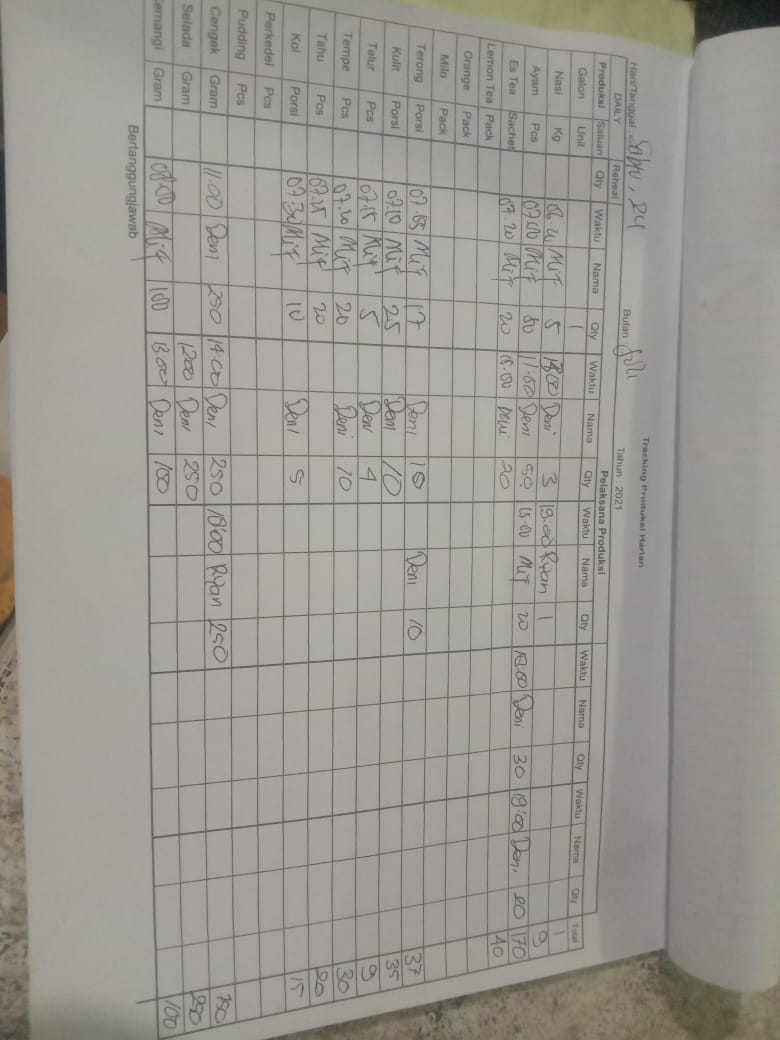 Tracking Produksi Harian
Hari/Tanggal Sabtu, 24 Bulan Juli Tahun : 2021
DAILY Reheat Pelaksana Produksi
Produksi Satuan Qty Waktu Nama Qty Waktu Nama Qty Waktu Nama Qty Waktu Nama Qty Waktu Nama Qty Total
Galon Unit 1 1
Nasi Kg Mif 5 Deni 3 18:00 Ryan 1 9
Ayam Pcs 07.00 Mif 50 11.00 Deni 50 15.00 Mif 20 18:00 Deni 30 19:00 Deni 20 170
Es Tea Sachet 07.20 Mif 20 15.00 20 40
Lemon Tea Pack
Orange Pack
Milo Pack
Terong Porsi Mif 17 Deni 10 Deni 10 37
Kulit Porsi 07.10 Mif 25 Deni 10 35
Telur Pcs 07.15 Mif 5 Deni 4 9
Tempe Pcs 07.20 Mif 20 Deni 10 30
Tahu Pcs 07.25 Mif 20 20
Kol Porsi 07.30 Mif 10 Deni 5 15
Perkedel Pcs
Pudding Pcs
Cengek Gram 11:00 Deni 250 14:00 Deni 250 18:00 Ryan 250 750
Selada Gram 12:00 Deni 250 250
emangi Gram Mif 100 13:00 Deni 100 100
Bertanggungjawab